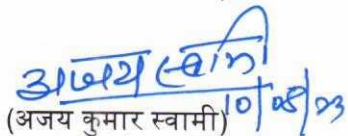 अजय स्वामी
10/08/23
(अजय कुमार स्वामी)